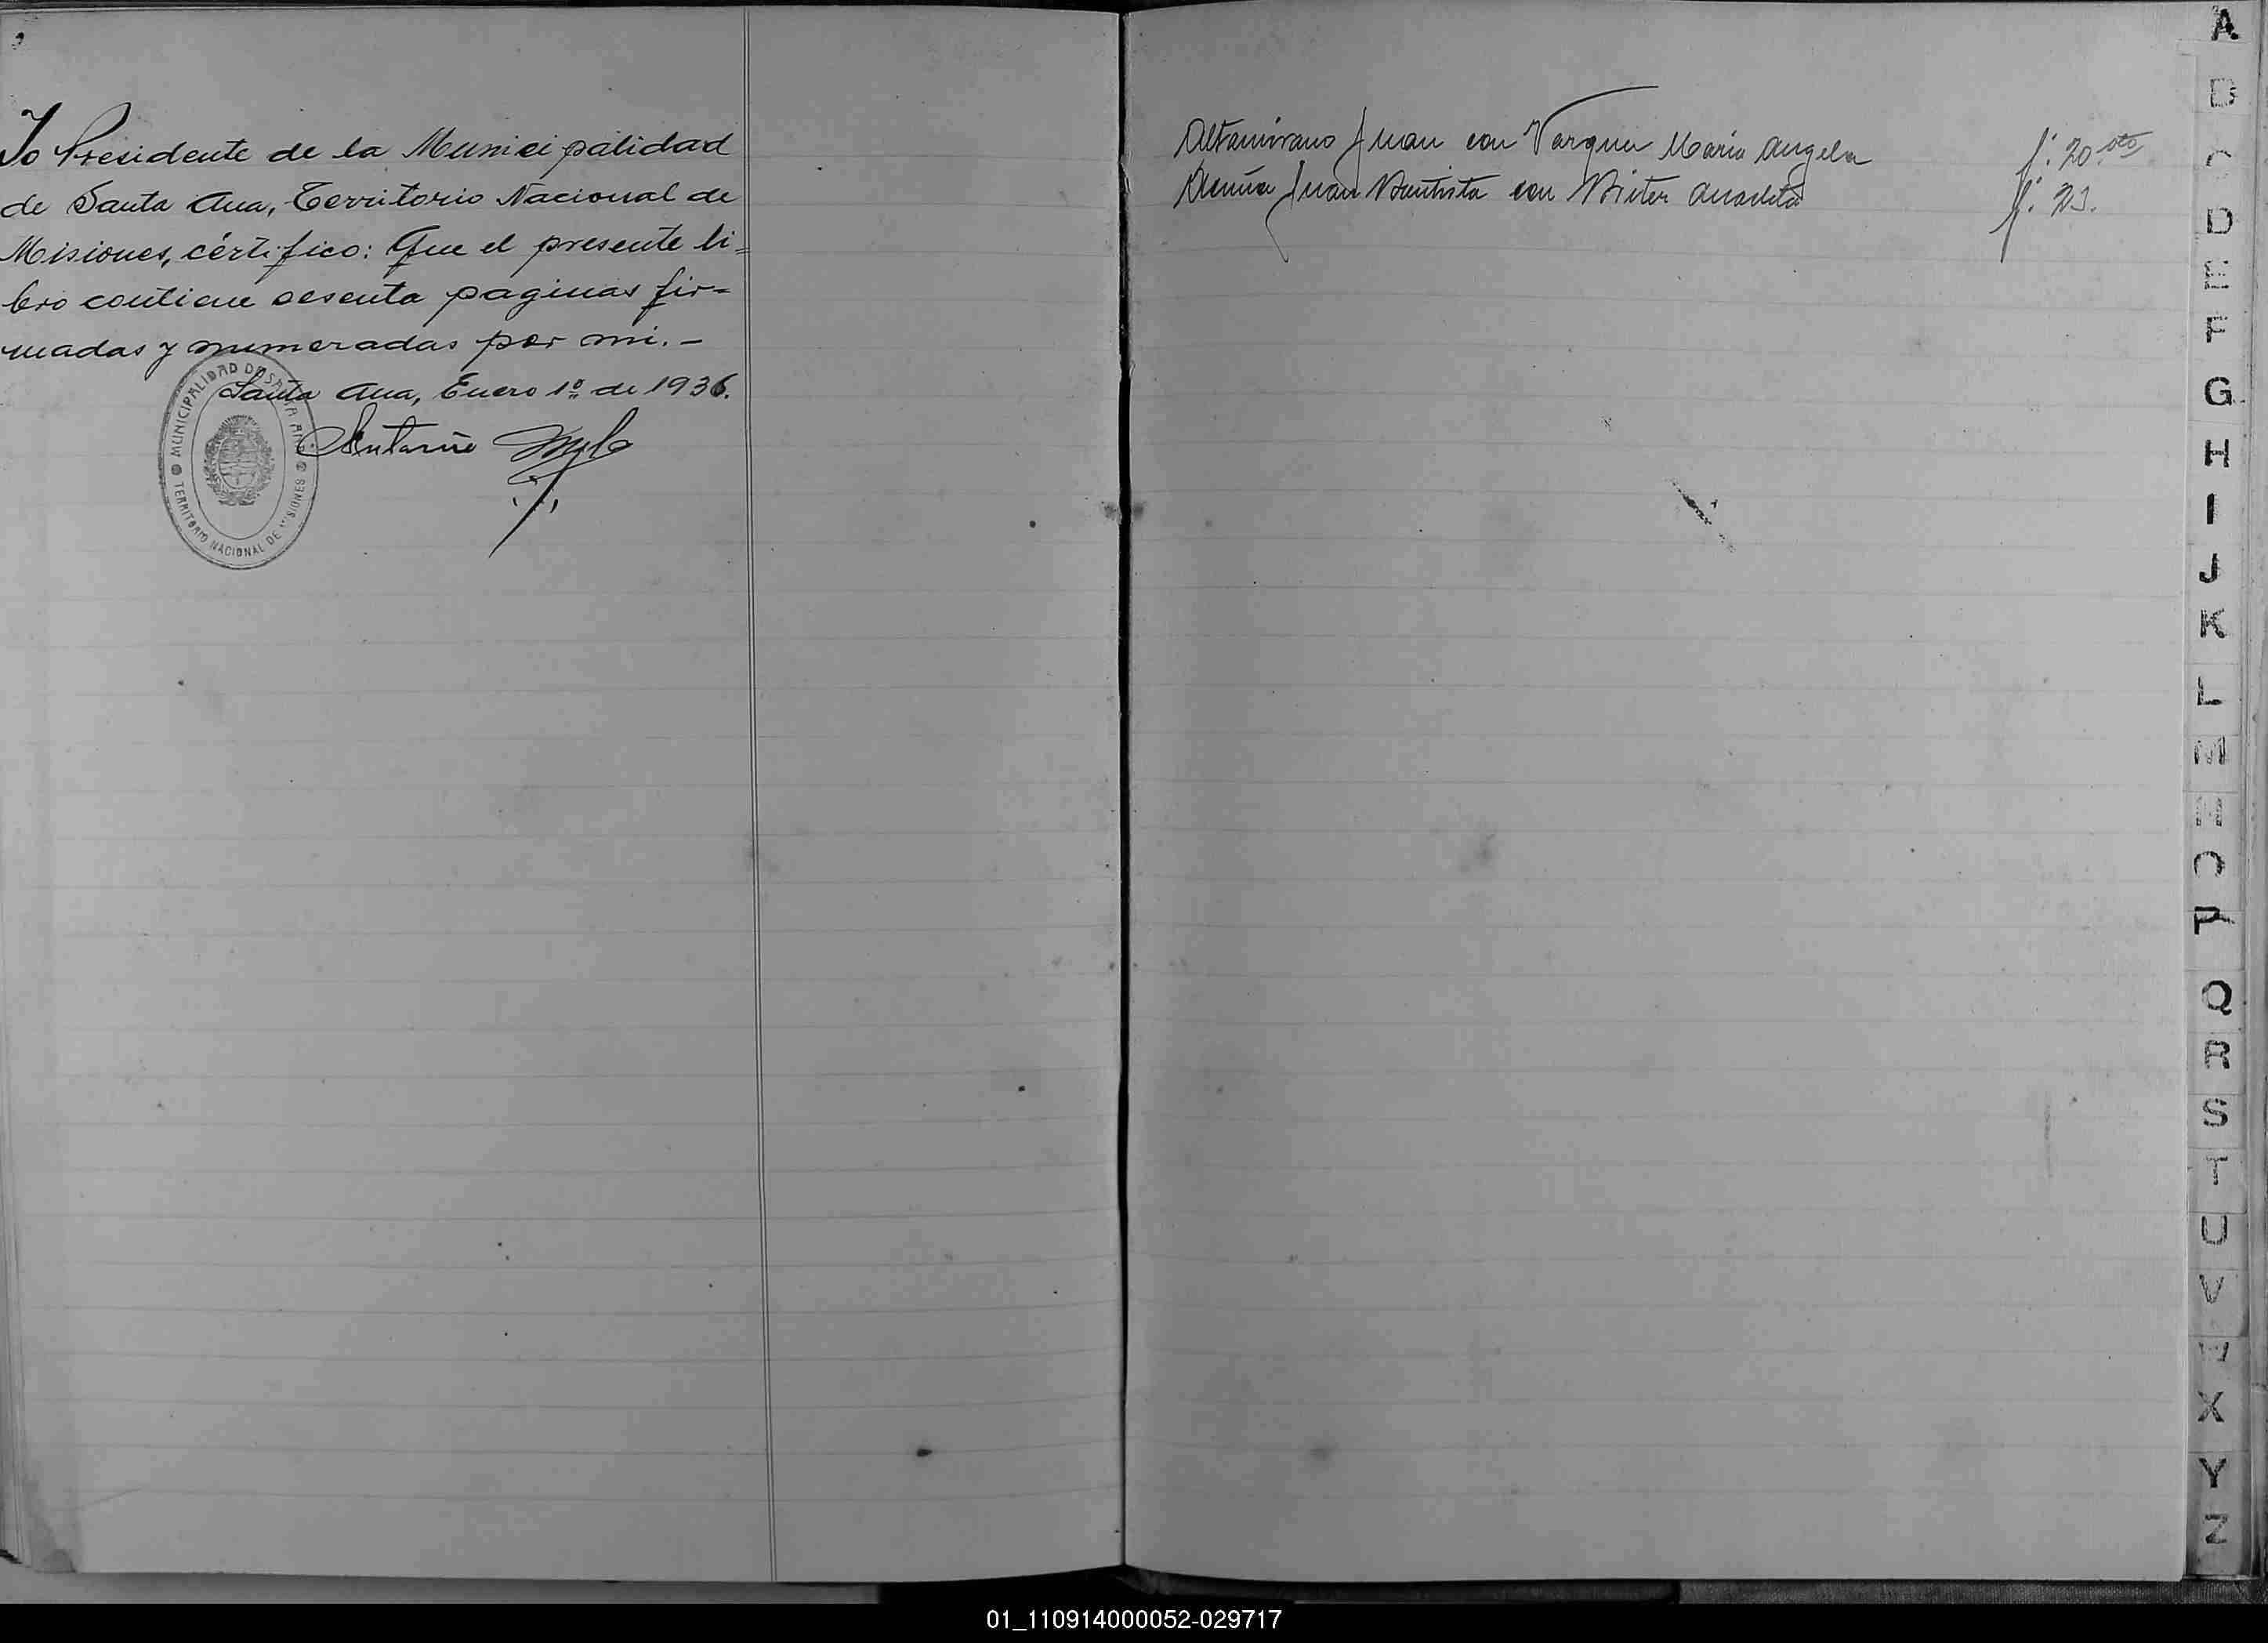 Yo Presidente de la Municipalidad
de Santa Ana, Territorio Nacional de
Misiones, cértifico: Que el presente li=
bro contiene sesenta paginas fir=
madas y numeradas por mi. -
Santa Ana, Enero 1º de 1936.
MUNICIPALIDAD DE SANTA ANA
TERRITORIO NACIONAL DE MISIONES
Altamirano Juan con María Angela f: 20 vto
Juan Bautista con f: 23.
A
B
C
D
E
F
G
H
I
J
K
L
M
N
O
P
Q
R
S
T
U
V
W
X
Y
Z
01_110914000052-029717